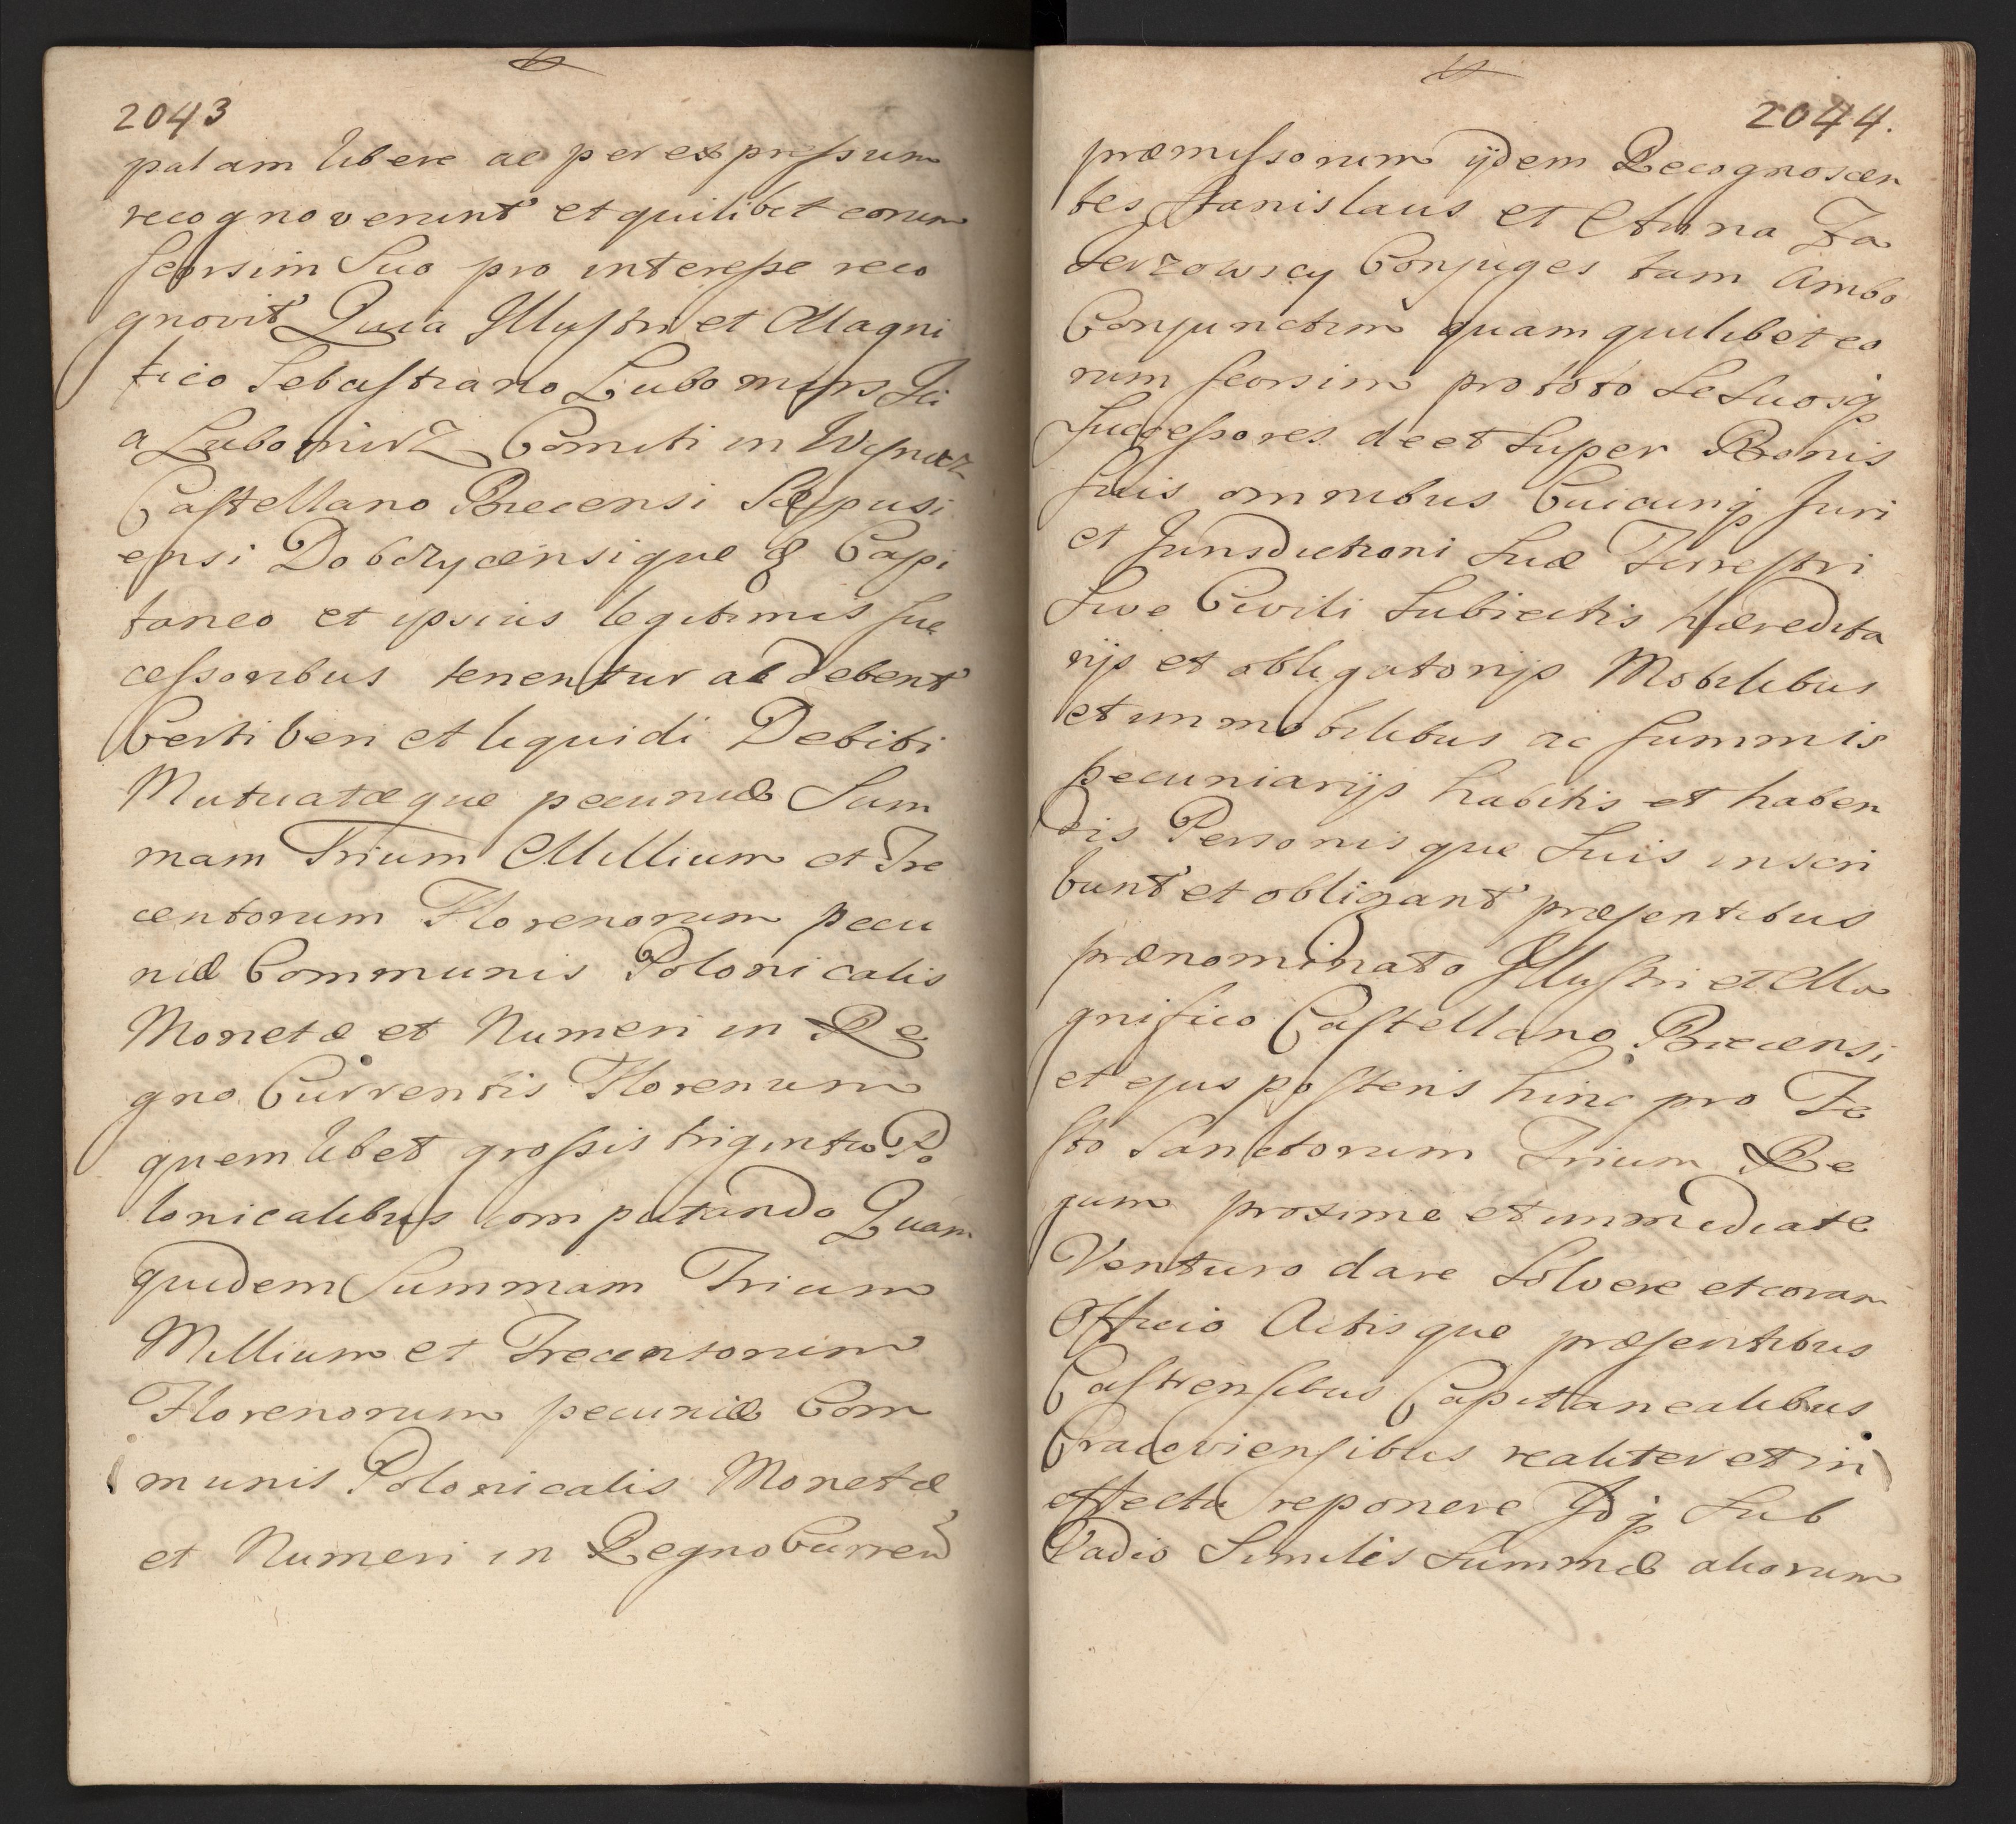 2043
palam libere ac per expressum
recognoverunt et quilibet eorum
seorsim Suo pro interesse reco
gnovit Quia Illustri et Magni
fico Sebastiano Lubomirs Sci
a Lubomirz Comiti in Wisnicz
Castellano Biecensi Scepusi
ensi Dobczycensique & Capi
taneo et ipsius legitimis suc
cessoribus tenentur ac debent
Certi veri et liquidi Debiti
Mutuatæque pecuniæ Sum
mam Trium Millium et Tre
centorum Florenorum pecu
niæ Communis Polonicalis
Monetæ et Numeri in Re
gno Currentis Florenum
quemlibet grossis triginta Po
lonicalibus computando Quam
quidem Summam Trium
Millium et Trecentorum
Florenorum pecuniæ Com
munis Polonicalis Monetæ
et Numeri in Regno Curren
2044.
præmissorum ijdem Recognoscen
tes Stanislaus et Anna Za
Conjuges tam Ambo
Conjunctim quam quilibet eo
rum seorsim pro toto Se Suosq
Successores de et Super Bonis
suis omnibus Cuicunq Juri
et Jurisdictioni Suæ Terrestri
Sive Civili Subiectis hæredita
rijs et obligatorijs Mobilibus
et immobilibus ac summis
pecuniarijs habitis et haben
dis Personisque Suis inscri
bunt et obligant præsentibus
prænominato Illustri et Ma
gnifico Castellano Biecensi
et ejus posteris hinc pro Fe
sto Sanctorum Trium Re
gum proxime et immediate
Venturo dare Solvere et coram
Officio Actisque præsentibus
Castrensibus Capitanealibus
Cracoviensibus realiter et in
effectu reponere Idq Sub
Vadio Similis Summæ aliorum